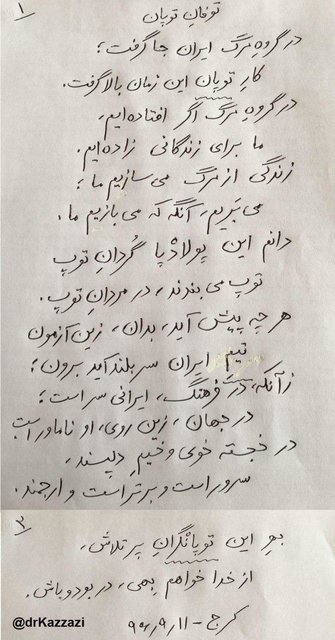 ۱
توفانِ توپان
در گروهِ مرگ ایران جا گرفت؛
کارِ توپان این زمان بالا گرفت.
در گروهِ مرگ اگر افتاده‌ایم،
ما برای زندگانی زاده‌ایم.
زندگی از مرگ می‌سازیم ما؛
می‌بَریم، آنگه که می‌بازیم ما.
دانم این پولادْپا گُردانِ توپ
توپ می‌بندند، در مردانِ توپ.
هر چه پیش آید، بدان، زین آزمون
تیمِ ایران سربلند آید برون؛
زآنکه، در فرهنگ، ایرانی سر است؛
در جهان، زین روی، او نامآور است
در خجسته خوی و خیمِ دلپسند،
سرور است و برتر است و ارجمند.
۳
بهرِ این توپانگرانِ پرتلاش،
از خدا خواهم بهی، در بود و باش.
کرج - ۹۶/۹/۱۱
@drKazzazi